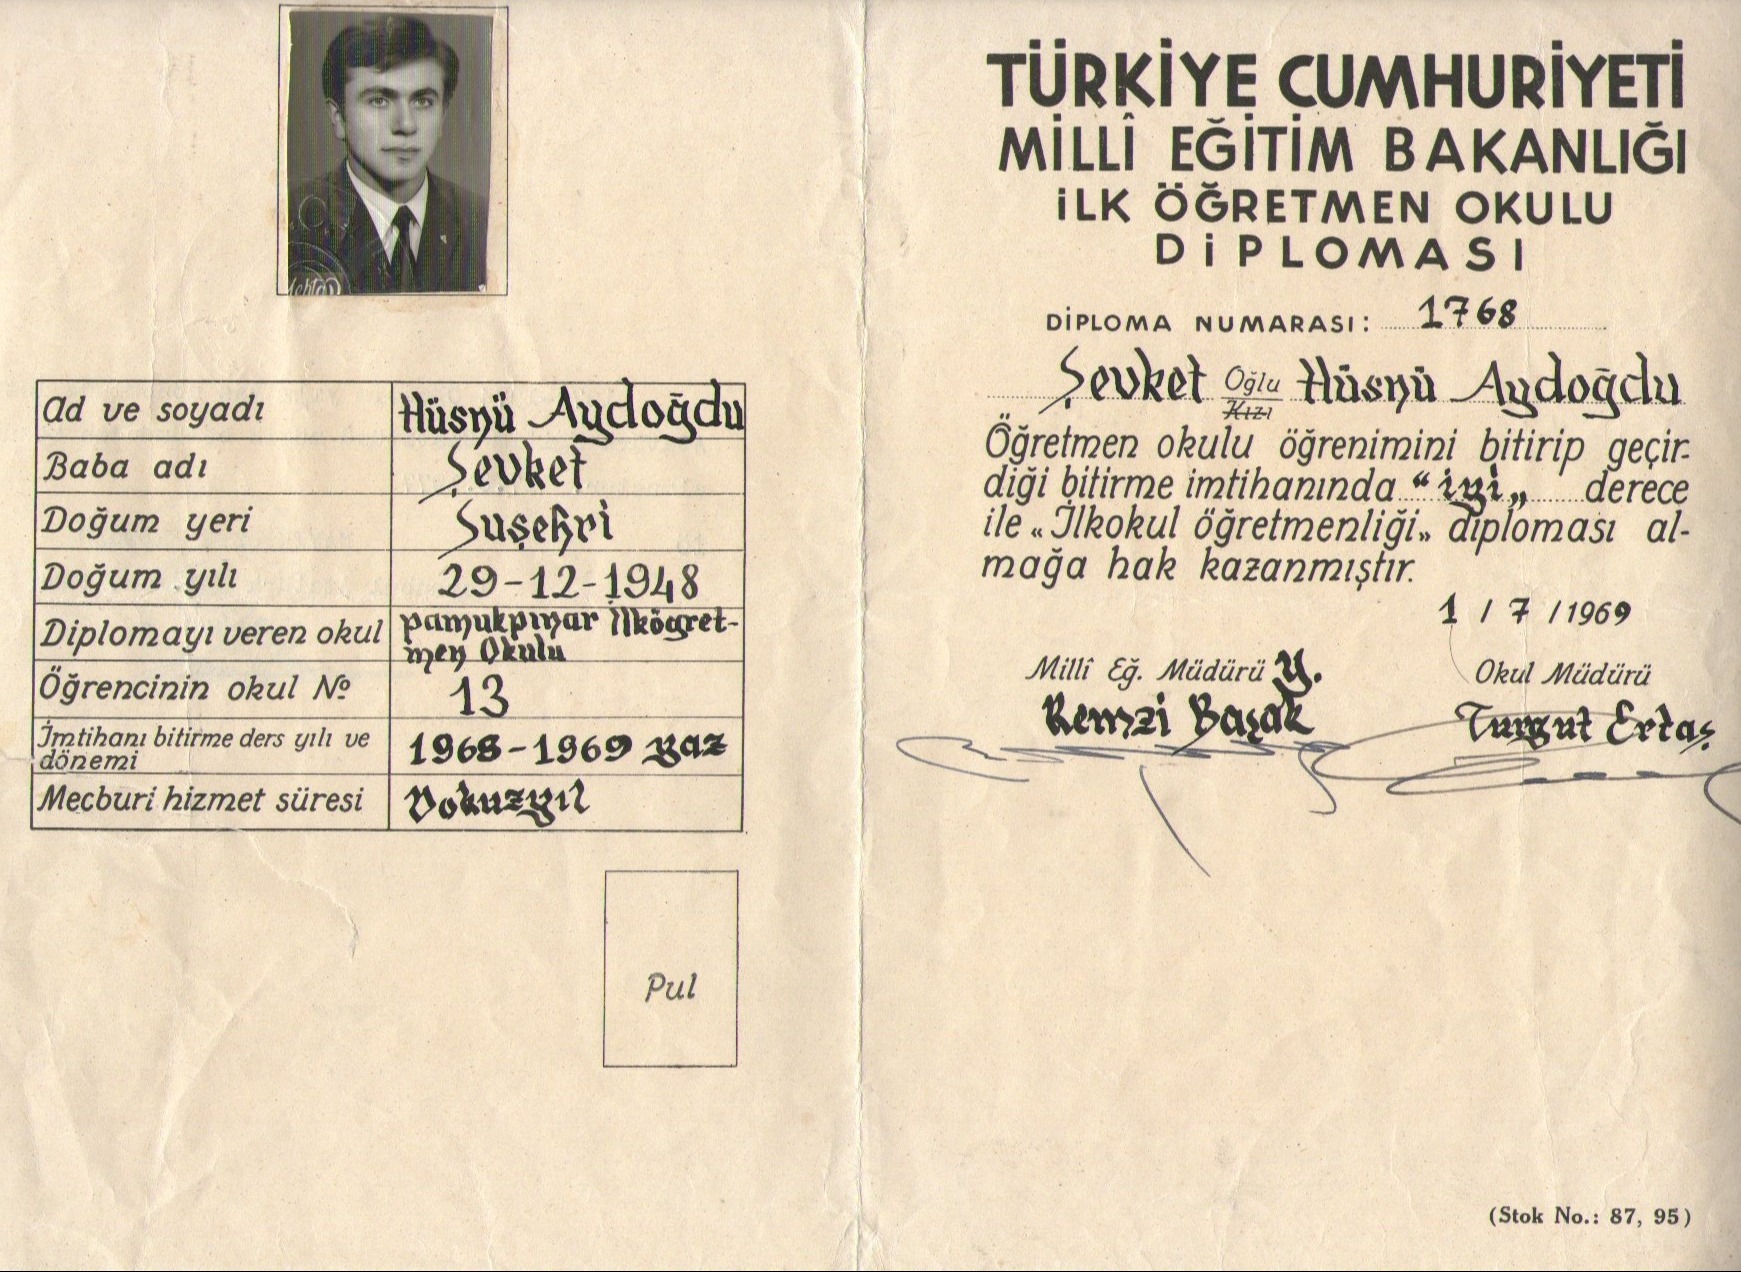 Ad ve soyadı Hüsnü Aydoğdu
Baba adı Şevket
Doğum yeri Suşehri
Doğum yılı 29-12-1948
Diplomayı veren okul pamukpınar İlköğret-
men Okulu
Öğrencinin okul No 13
İmtihanı bitirme ders yılı ve
dönemi 1968-1969 yaz
Mecburi hizmet süresi Dokuzyıl
Pul
TÜRKİYE CUMHURİYETİ
MİLLÎ EĞİTİM BAKANLIĞI
İLK ÖĞRETMEN OKULU
DİPLOMASI
DİPLOMA NUMARASI: 1768
Şevket Oğlu Kızı Hüsnü Aydoğdu
Öğretmen okulu öğrenimini bitirip geçir-
diği bitirme imtihanında "iyi„ derece
ile „İlkokul öğretmenliği„ diploması al-
mağa hak kazanmıştır.
1 / 7 / 1969
Millî Eğ. Müdürü Y. Okul Müdürü
Remzi Başak Turgut Ertaş
(Stok No.: 87, 95)